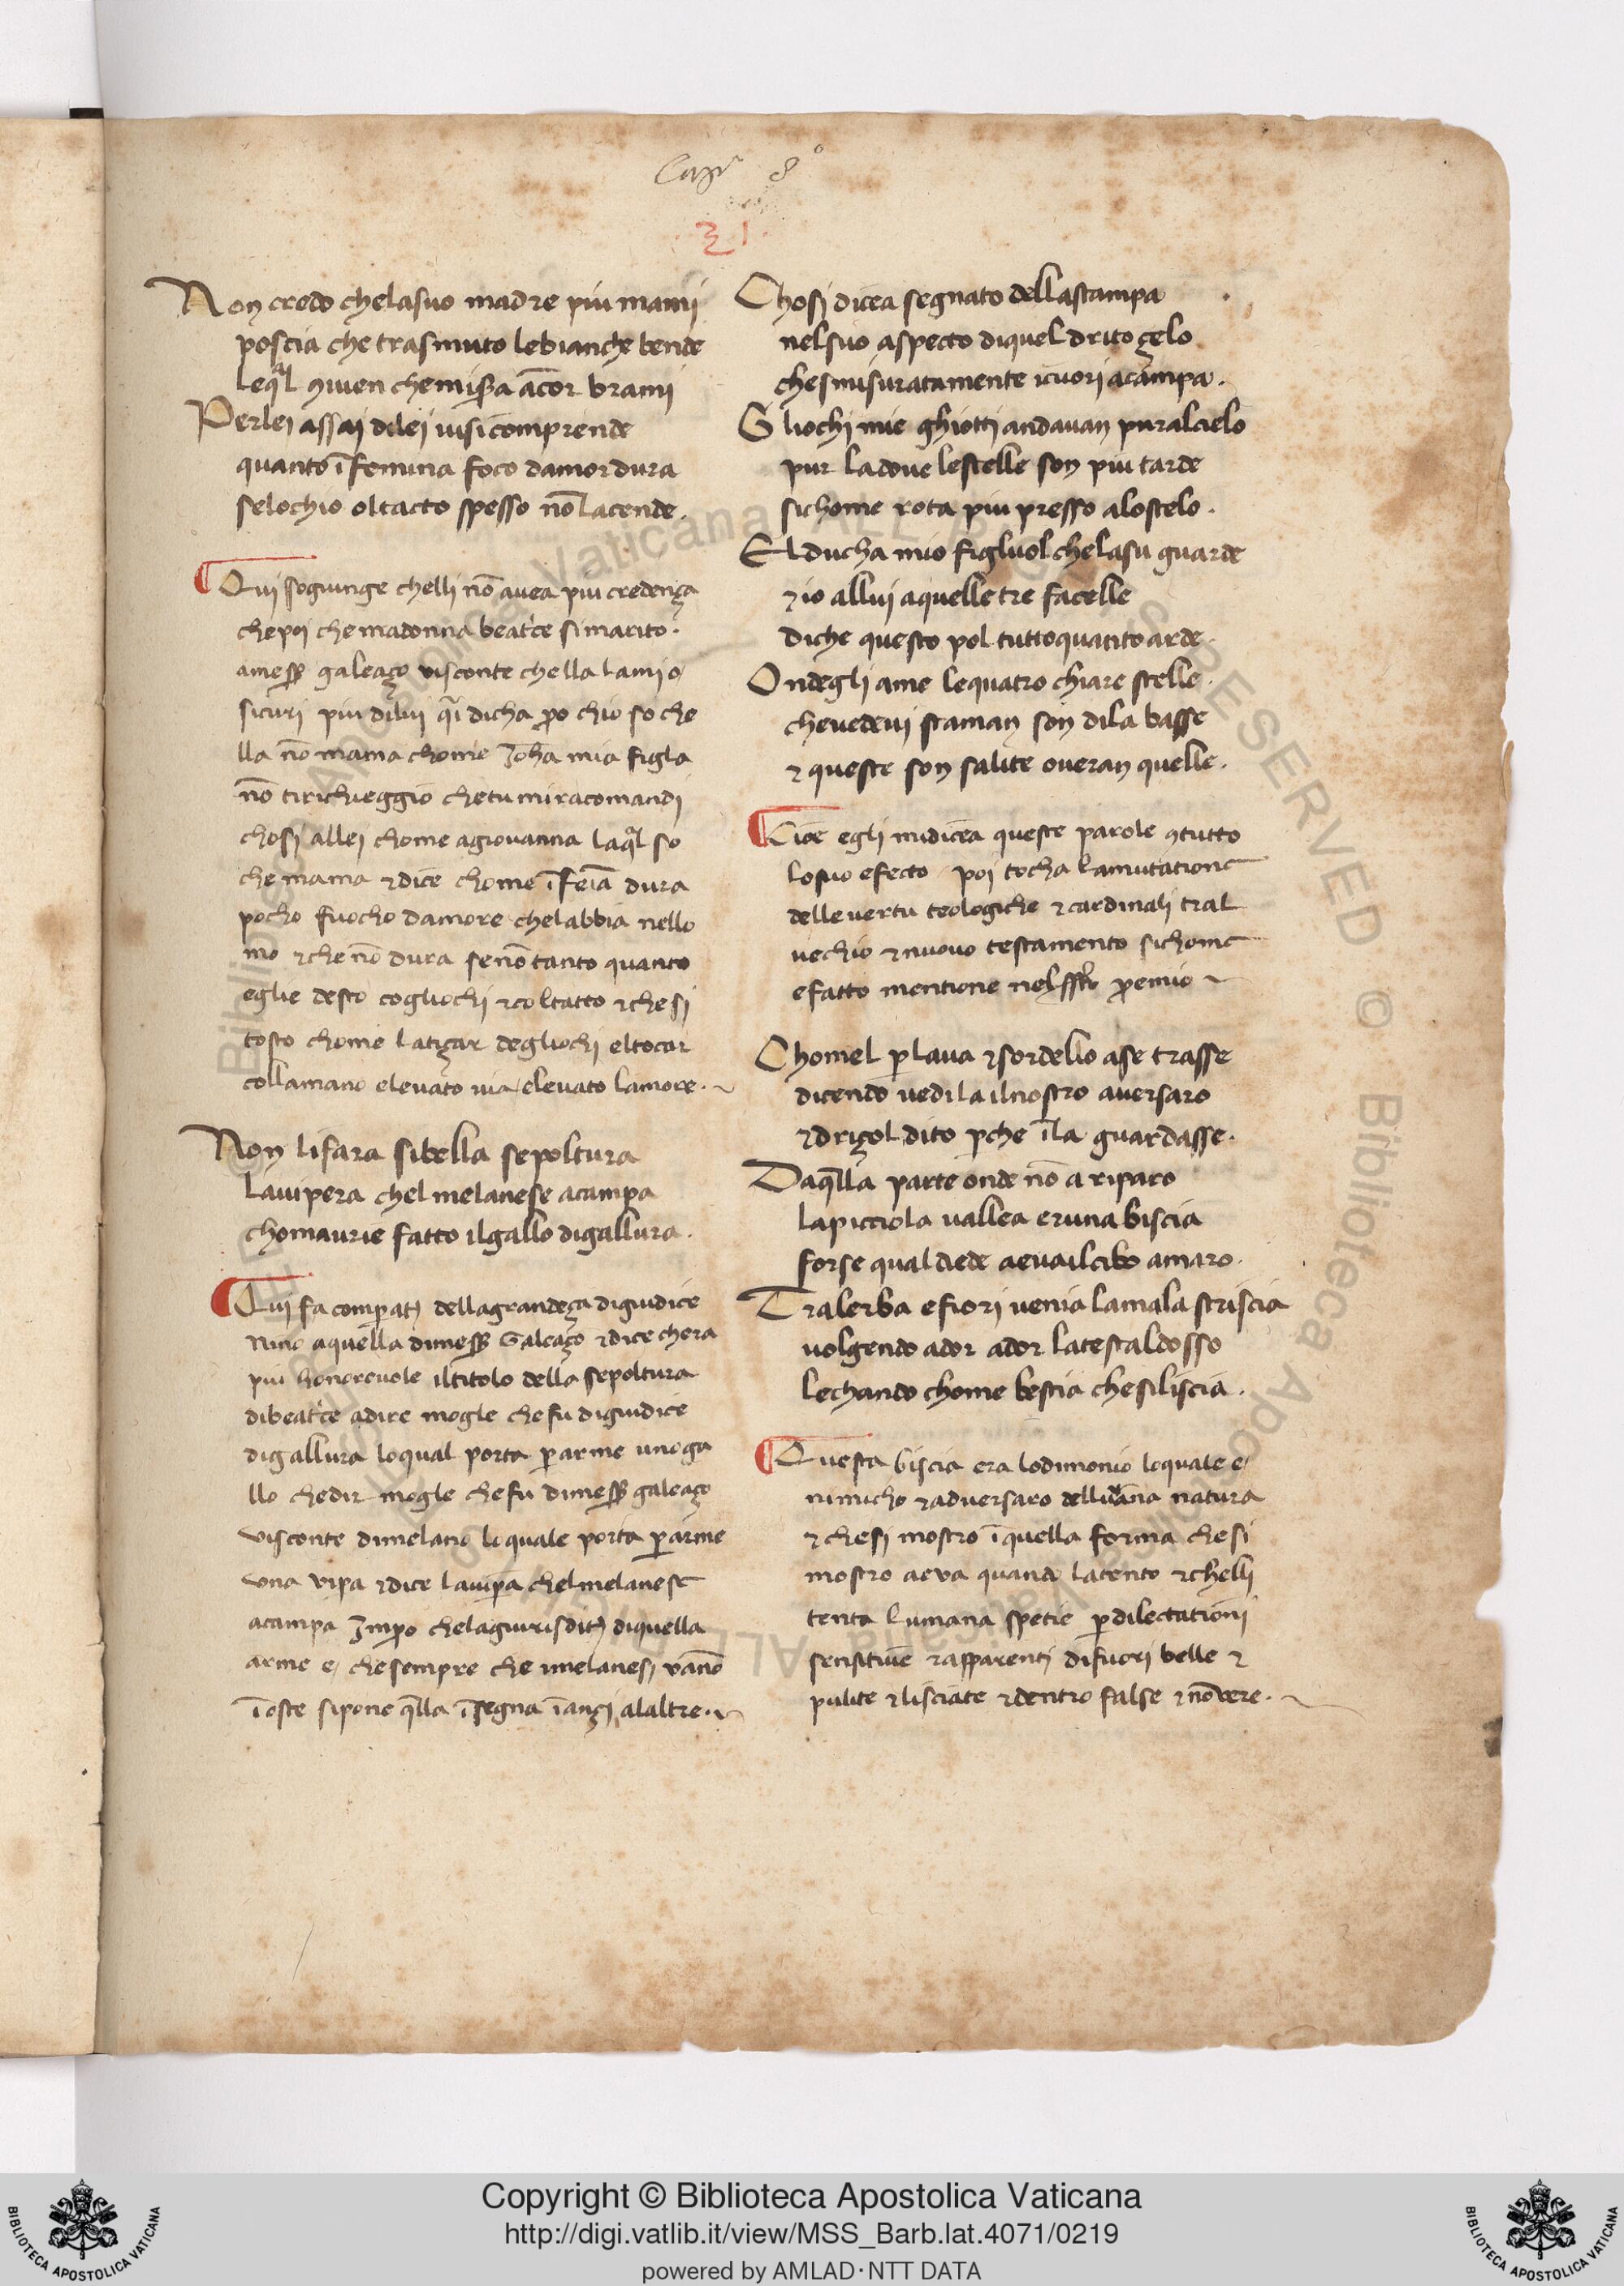 Capo 8°
31
Non credo chelasuo madre piu mami
poscia che trasmuto lebianche bende
leql 9uien chemisera ācor brami
Perlei assai dilej uisicomprende
quanto ī femina foco damor dura
selochio oltacto spesso nō lacende.
Qui sogiunge chelli nō auea piu credença
chepoi che madonna beatce simarito.
amess galeaço visconte chella lami o
sicuri piu dilui qi dicha po chio so che
lla nō mama chome Joha mia figla
nō tirichieggio chetu miracomandi
chosi allei chome agiovanna laql so
che mama 7 dice chome ī feīa dura
pocho fuocho damore chelabbia nello
mo 7 che nō dura senō tanto quanto
eglie desto cogliochi 7 coltatto 7 chesi
tosto chome latiçar degliochi eltocar
collamano elevato uia elevato lamore.
Non lifara sibella sepoltura
lauipera chel melanese acampa
chomaurie fatto ilgallo digallura.
Qui fa comperatj dellagrandeça digiudice
Nino aquella dimess Galeaço 7 dice chera
piu honorevole iltitolo della sepoltura
dibeatce adire mogle chefu digiudice
digallura loqual porta p arme unoga
llo chedir mogle chefu dimess galeaço
visconte dimelano loquale porta p arme
vna vipa 7 dice lauipa chelmelanese
acampa Impo chelagiurisditj diquella
arme e, chesempre che imelanesi vāno
ī oste sipone qlla īsegna īançi alaltre.
Chosi dicea segnato dellastampa
nelsuo aspecto diquel drito çelo
chesmisuratamente icuori acampa.
Gliochi mie ghiotti andauan puralcielo
pur ladoue lestelle son piu tarde
sichome rota piu presso alostelo.
El ducha mio figluol chelasu guarde
7 io allui aquelle tre facelle
diche questo pol tuttoquanto arde.
Ondegli ame lequatro chiare stelle.
chevedeui staman son dila basse
7 queste son salite oueran quelle.
Cioe egli midicea queste parole 9tutto
losuo efecto poi tocha lamutatione
delle vertu teologiche 7 cardinali tral
vechio 7 nuovo testamento sichome
efatto mentione nel pemio
Chomel plaua 7 sordello ase trasse
dicendo uedila ilnostro aversaro
7 driçol dito pche īla guardasse.
Daqlla parte onde nō a riparo
lapicciola uallea eruna biscia
forse qual diede aeuailcibo amaro.
Tralerba efiori uenia lamala striscia
uolgendo ador ador latestaldosso
lechando chome bestia chesiliscia.
Questa biscia era lodimonio loquale e,
nimicho 7 adversaro dell umana natura
7 chesi mostro ī quella forma chesi
mostro aeva quando latento 7 chelli
tenta lumana spetie p dilectationi
sensitiue 7 apparenti difuori belle 7
pulite 7 lisciate 7 dentro false 7 nōvere.
Copyright © Biblioteca Apostolica Vaticana
http://digi.vatlib.it/view/MSS_Barb.lat.4071/0219
powered by AMLAD·NTT DATA
BIBLIOTECA APOSTOLICA VATICANA
BIBLIOTECA APOSTOLICA VATICANA